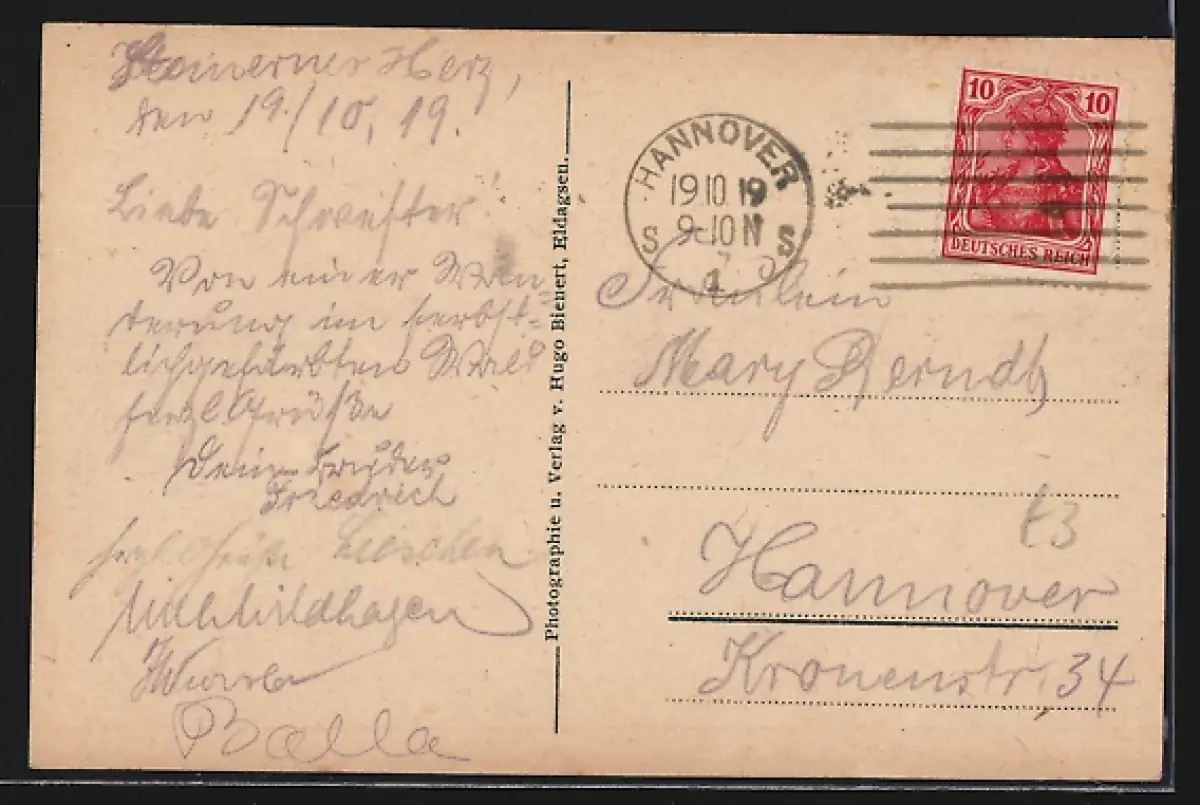 Herz,
den 19./10. 19.
Liebe Schwester!
Von einer Wan-
derung im herbst-
lichgefärbten Wald
herzl. Grüße
Dein Bruder
Friedrich
herzl. Grüße Lieschen
Balla
Photographie u. Verlag v. Hugo Bienert, Eldagsen.
HANNOVER
19.10.19
9-10 N
S S
1
10 10
DEUTSCHES REICH
Fräulein
Mary
Hannover
Kronenstr. 34